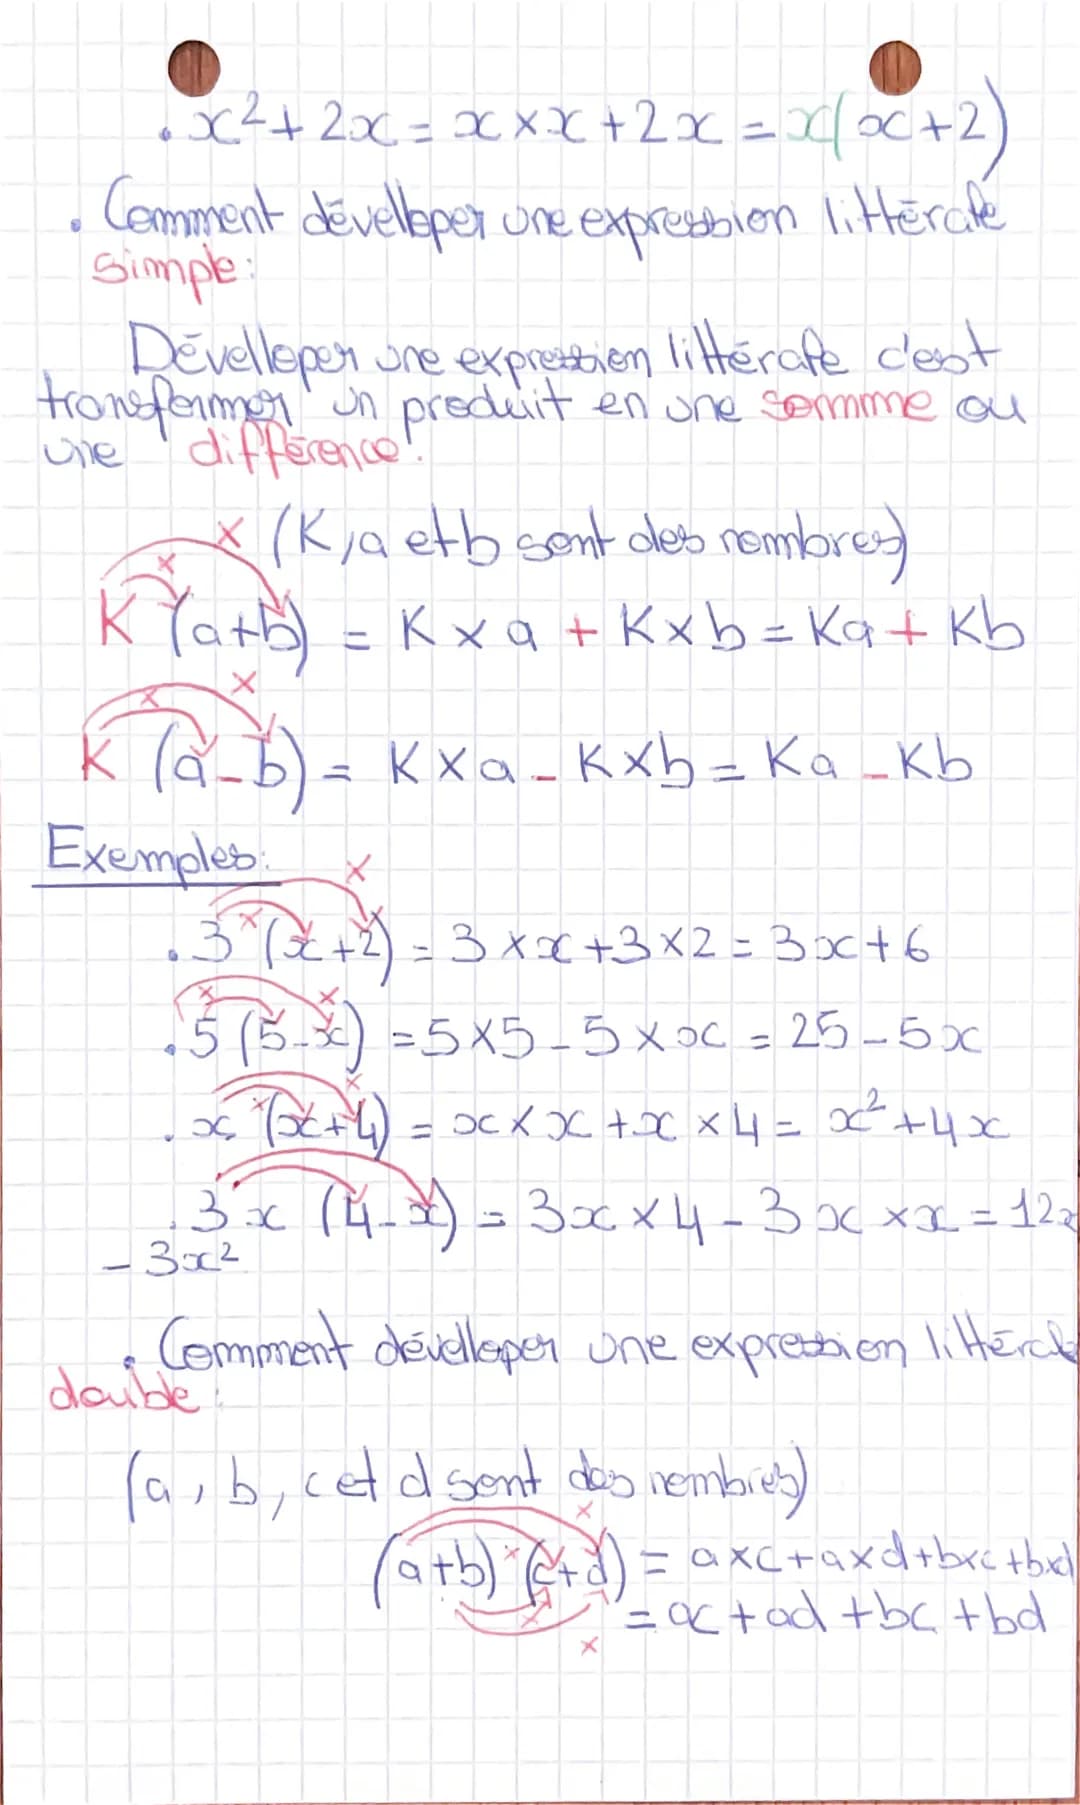 . x² + 2x = x × x + 2x = x(x+2)
. Comment dévelloper une expression littérale
simple :
Dévelloper une expression littérale c'est
transformer un produit en une somme ou
une différence.
× (K, a et b sont des nombres)
×
K (a+b) = K × a + K × b = Ka + Kb
× ×
K (a-b) = K × a - K × b = Ka - Kb
Exemples :
× ×
. 3 (x+2) = 3 × x + 3 × 2 = 3x + 6
× ×
. 5 (5-x) = 5 × 5 - 5 × x = 25 - 5x
× ×
. x (x+4) = x × x + x × 4 = x² + 4x
. 3x (4-x) = 3x × 4 - 3x × x = 12x
- 3x²
. Comment dévelloper une expression littérale
double :
(a, b, c et d sont des nombres)
× ×
(a+b) (c+d) = a×c + a×d + b×c + b×d
× = ac + ad + bc + bd
×